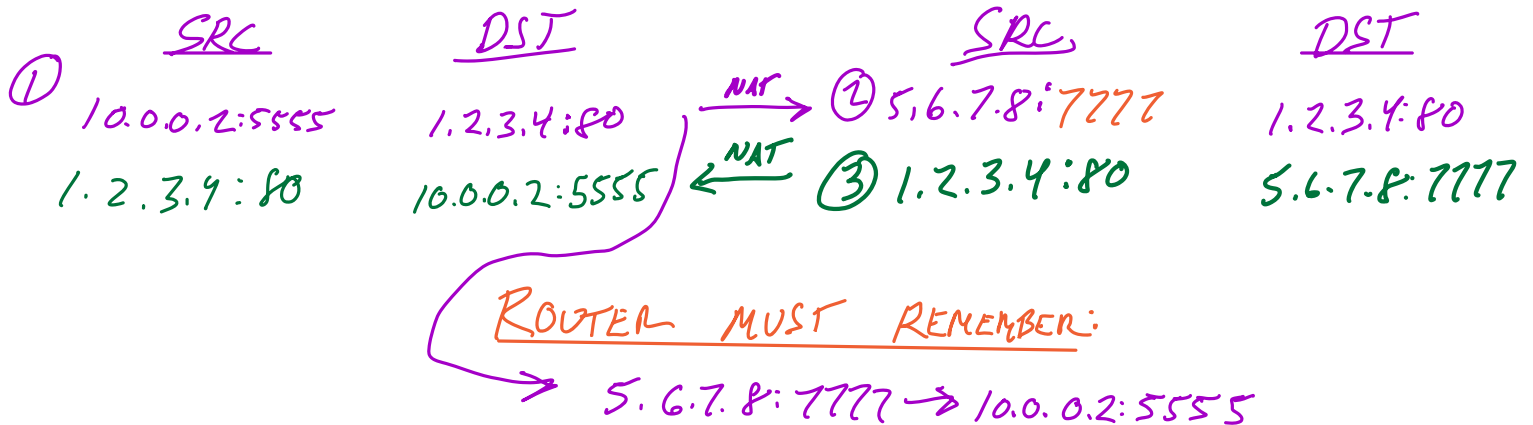 SRC DST SRC DST
① 10.0.0.2:5555 1.2.3.4:80 NAT ② 5.6.7.8:7777 1.2.3.4:80
1.2.3.4:80 10.0.0.2:5555 NAT ③ 1.2.3.4:80 5.6.7.8:7777
ROUTER MUST REMEMBER:
5.6.7.8:7777 → 10.0.0.2:5555